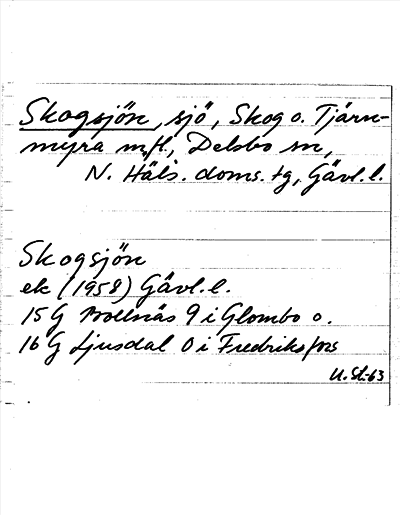 Skogsjön, sjö, Skog o. Tjärn-
myra m.fl., Delsbo sn,
N. Häls. doms. tg, Gävl.l.
Skogsjön
ek (1958) Gävl.l.
15 G Bollnäs 9 i Glombo o.
16 G Ljusdal 0 i Fredriksfors
U. St-63